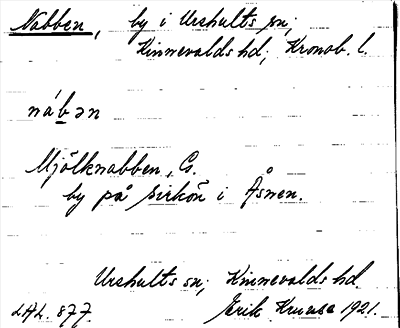 Nabben, by i Urshults sn;
Kinnevalds hd; Kronob. l.
nábən
Mjölknabben, G.
by på Sirkön i Åsnen.
Urshults sn; Kinnevalds hd.
LAL. 877. Erik Kruse 1921.